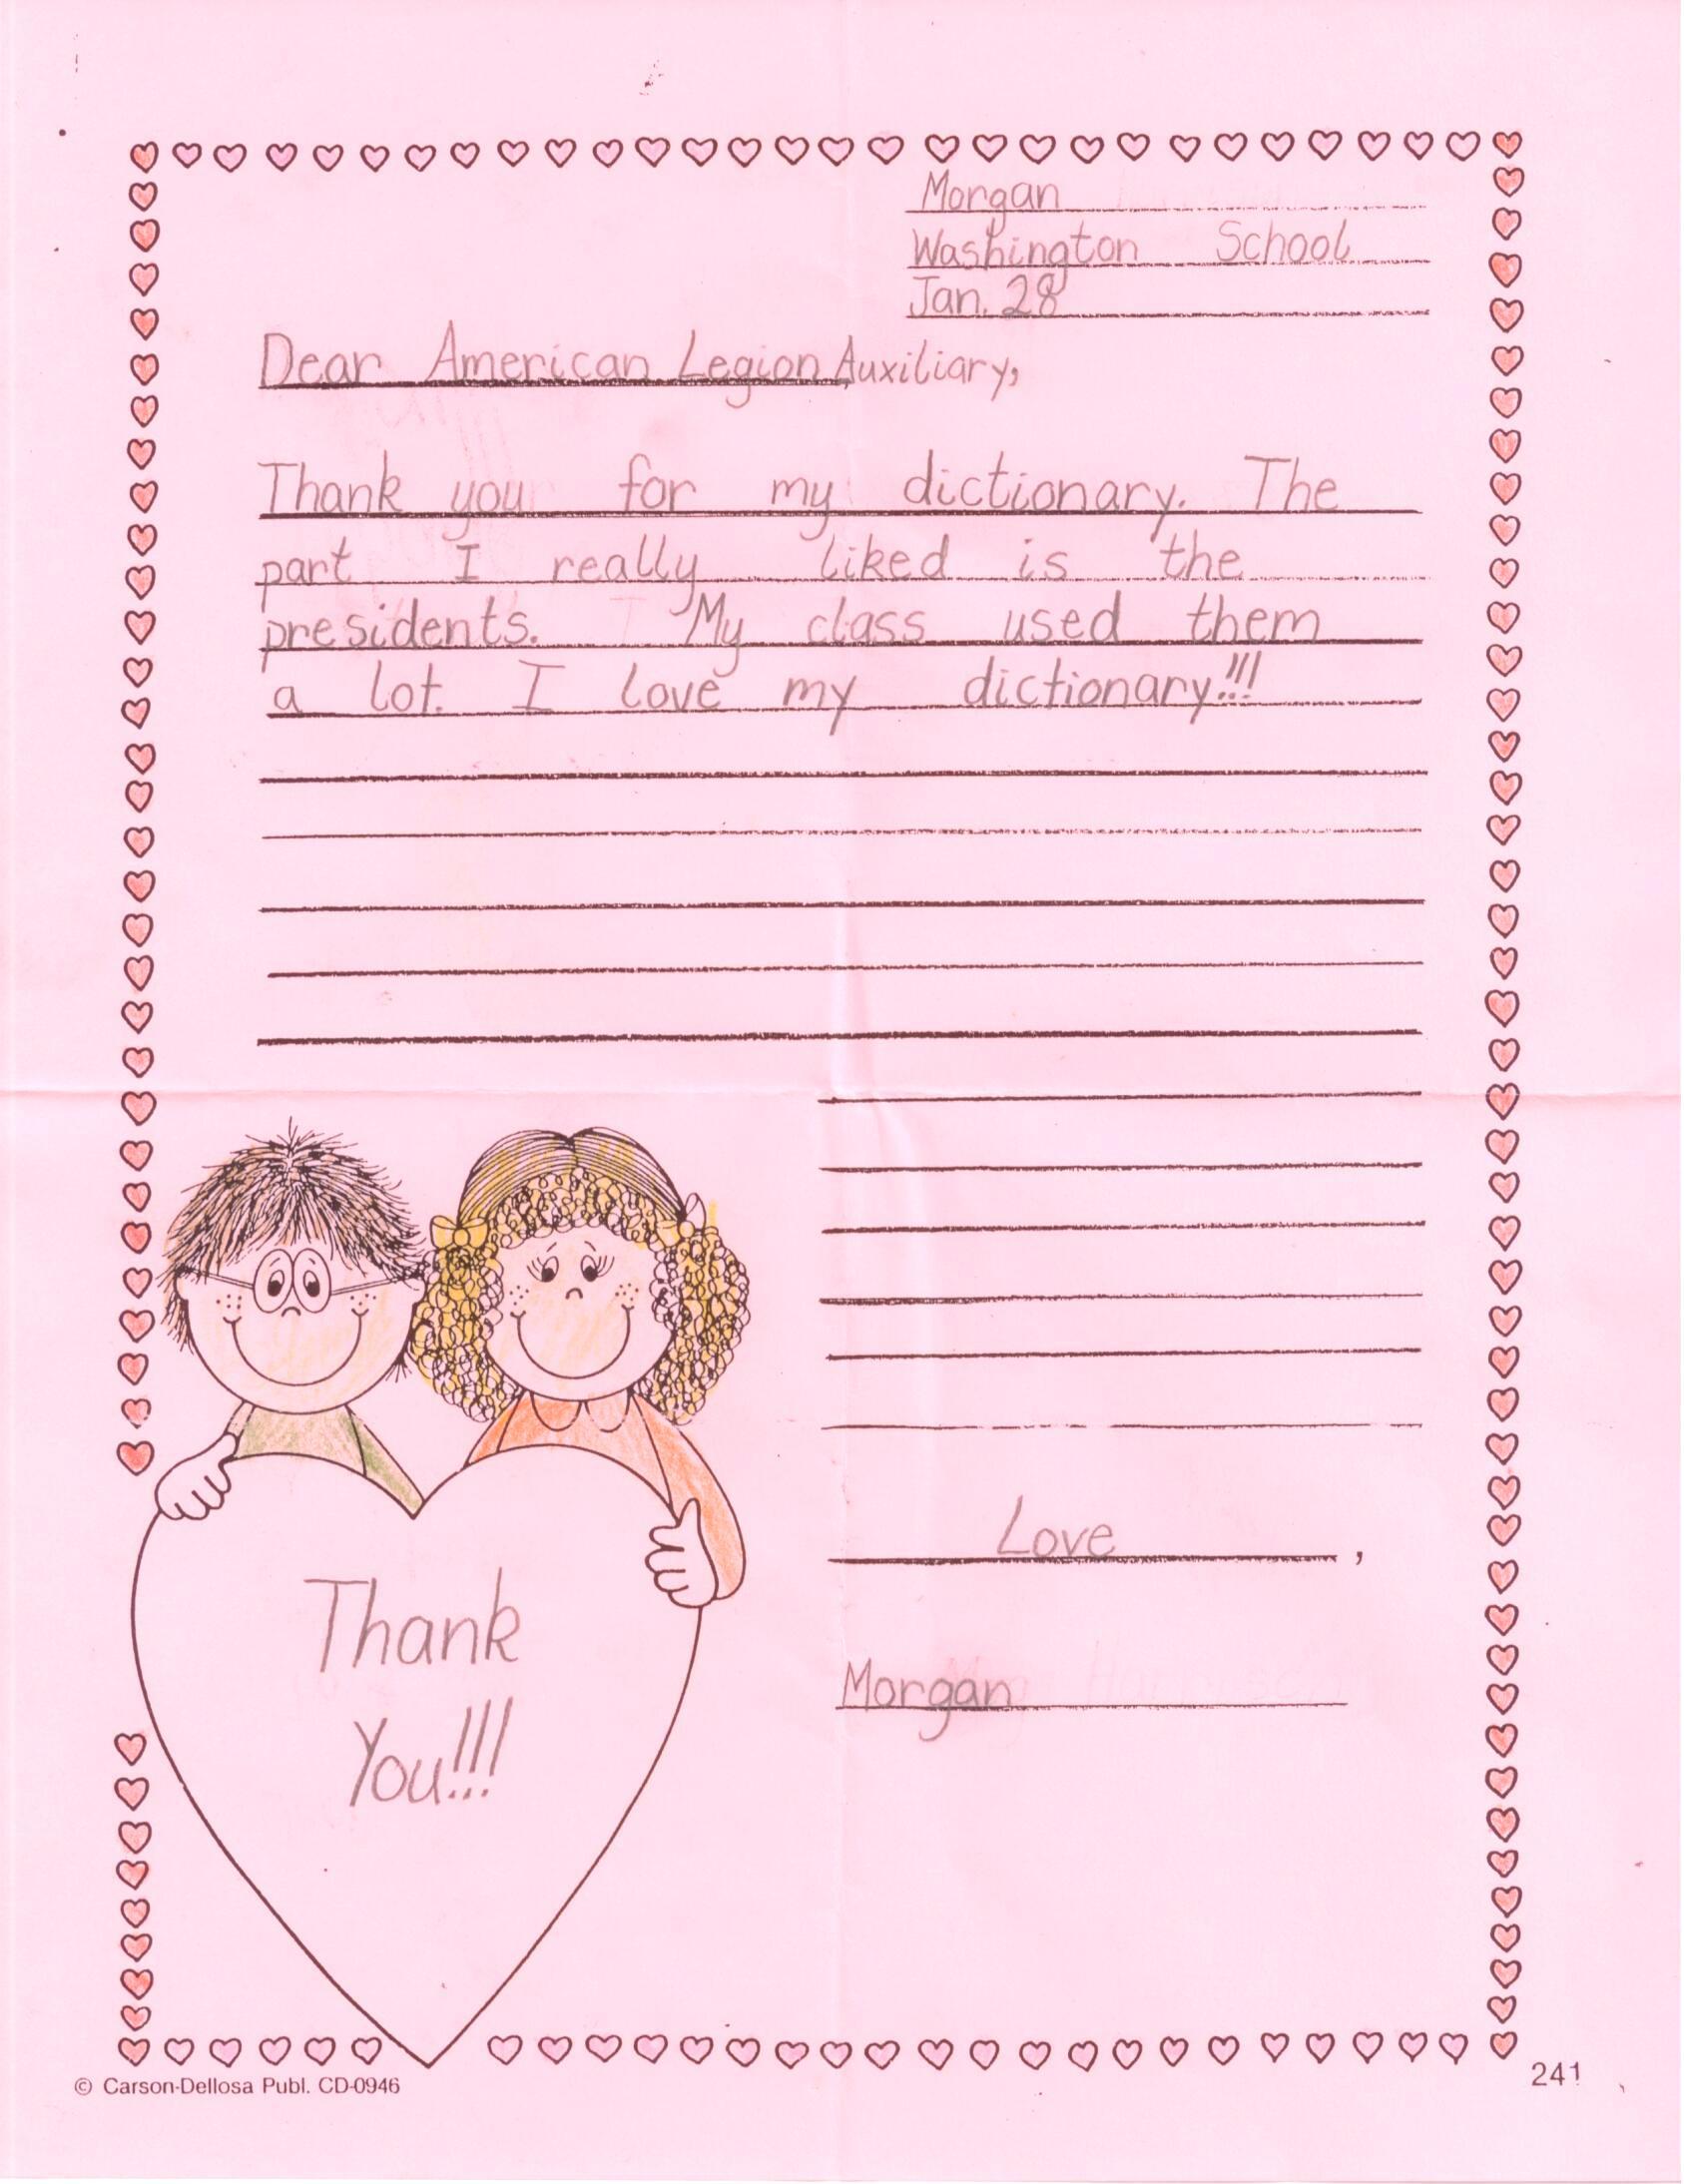 Morgan
Washington School
Jan. 28
Dear American Legion Auxiliary,
Thank you for my dictionary. The
part I really liked is the
presidents. My class used them
a lot. I love my dictionary!!!
Love,
Morgan
Thank
You!!!
© Carson-Dellosa Publ. CD-0946
241